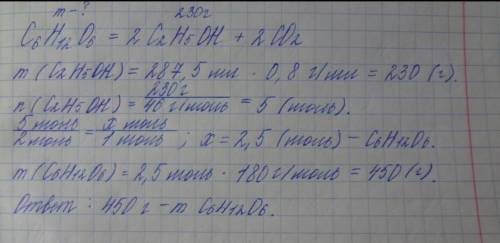 m-? 230г
C6H12O6 = 2C2H5OH + 2CO2
m(C2H5OH) = 287,5 мл · 0,8 г/мл = 230 (г).
n(C2H5OH) = 230г / 46 г/моль = 5 (моль).
5 моль / 2 моль = x моль / 1 моль ; x = 2,5 (моль) - C6H12O6.
m(C6H12O6) = 2,5 моль · 180 г/моль = 450 (г).
Ответ : 450 г - m C6H12O6.